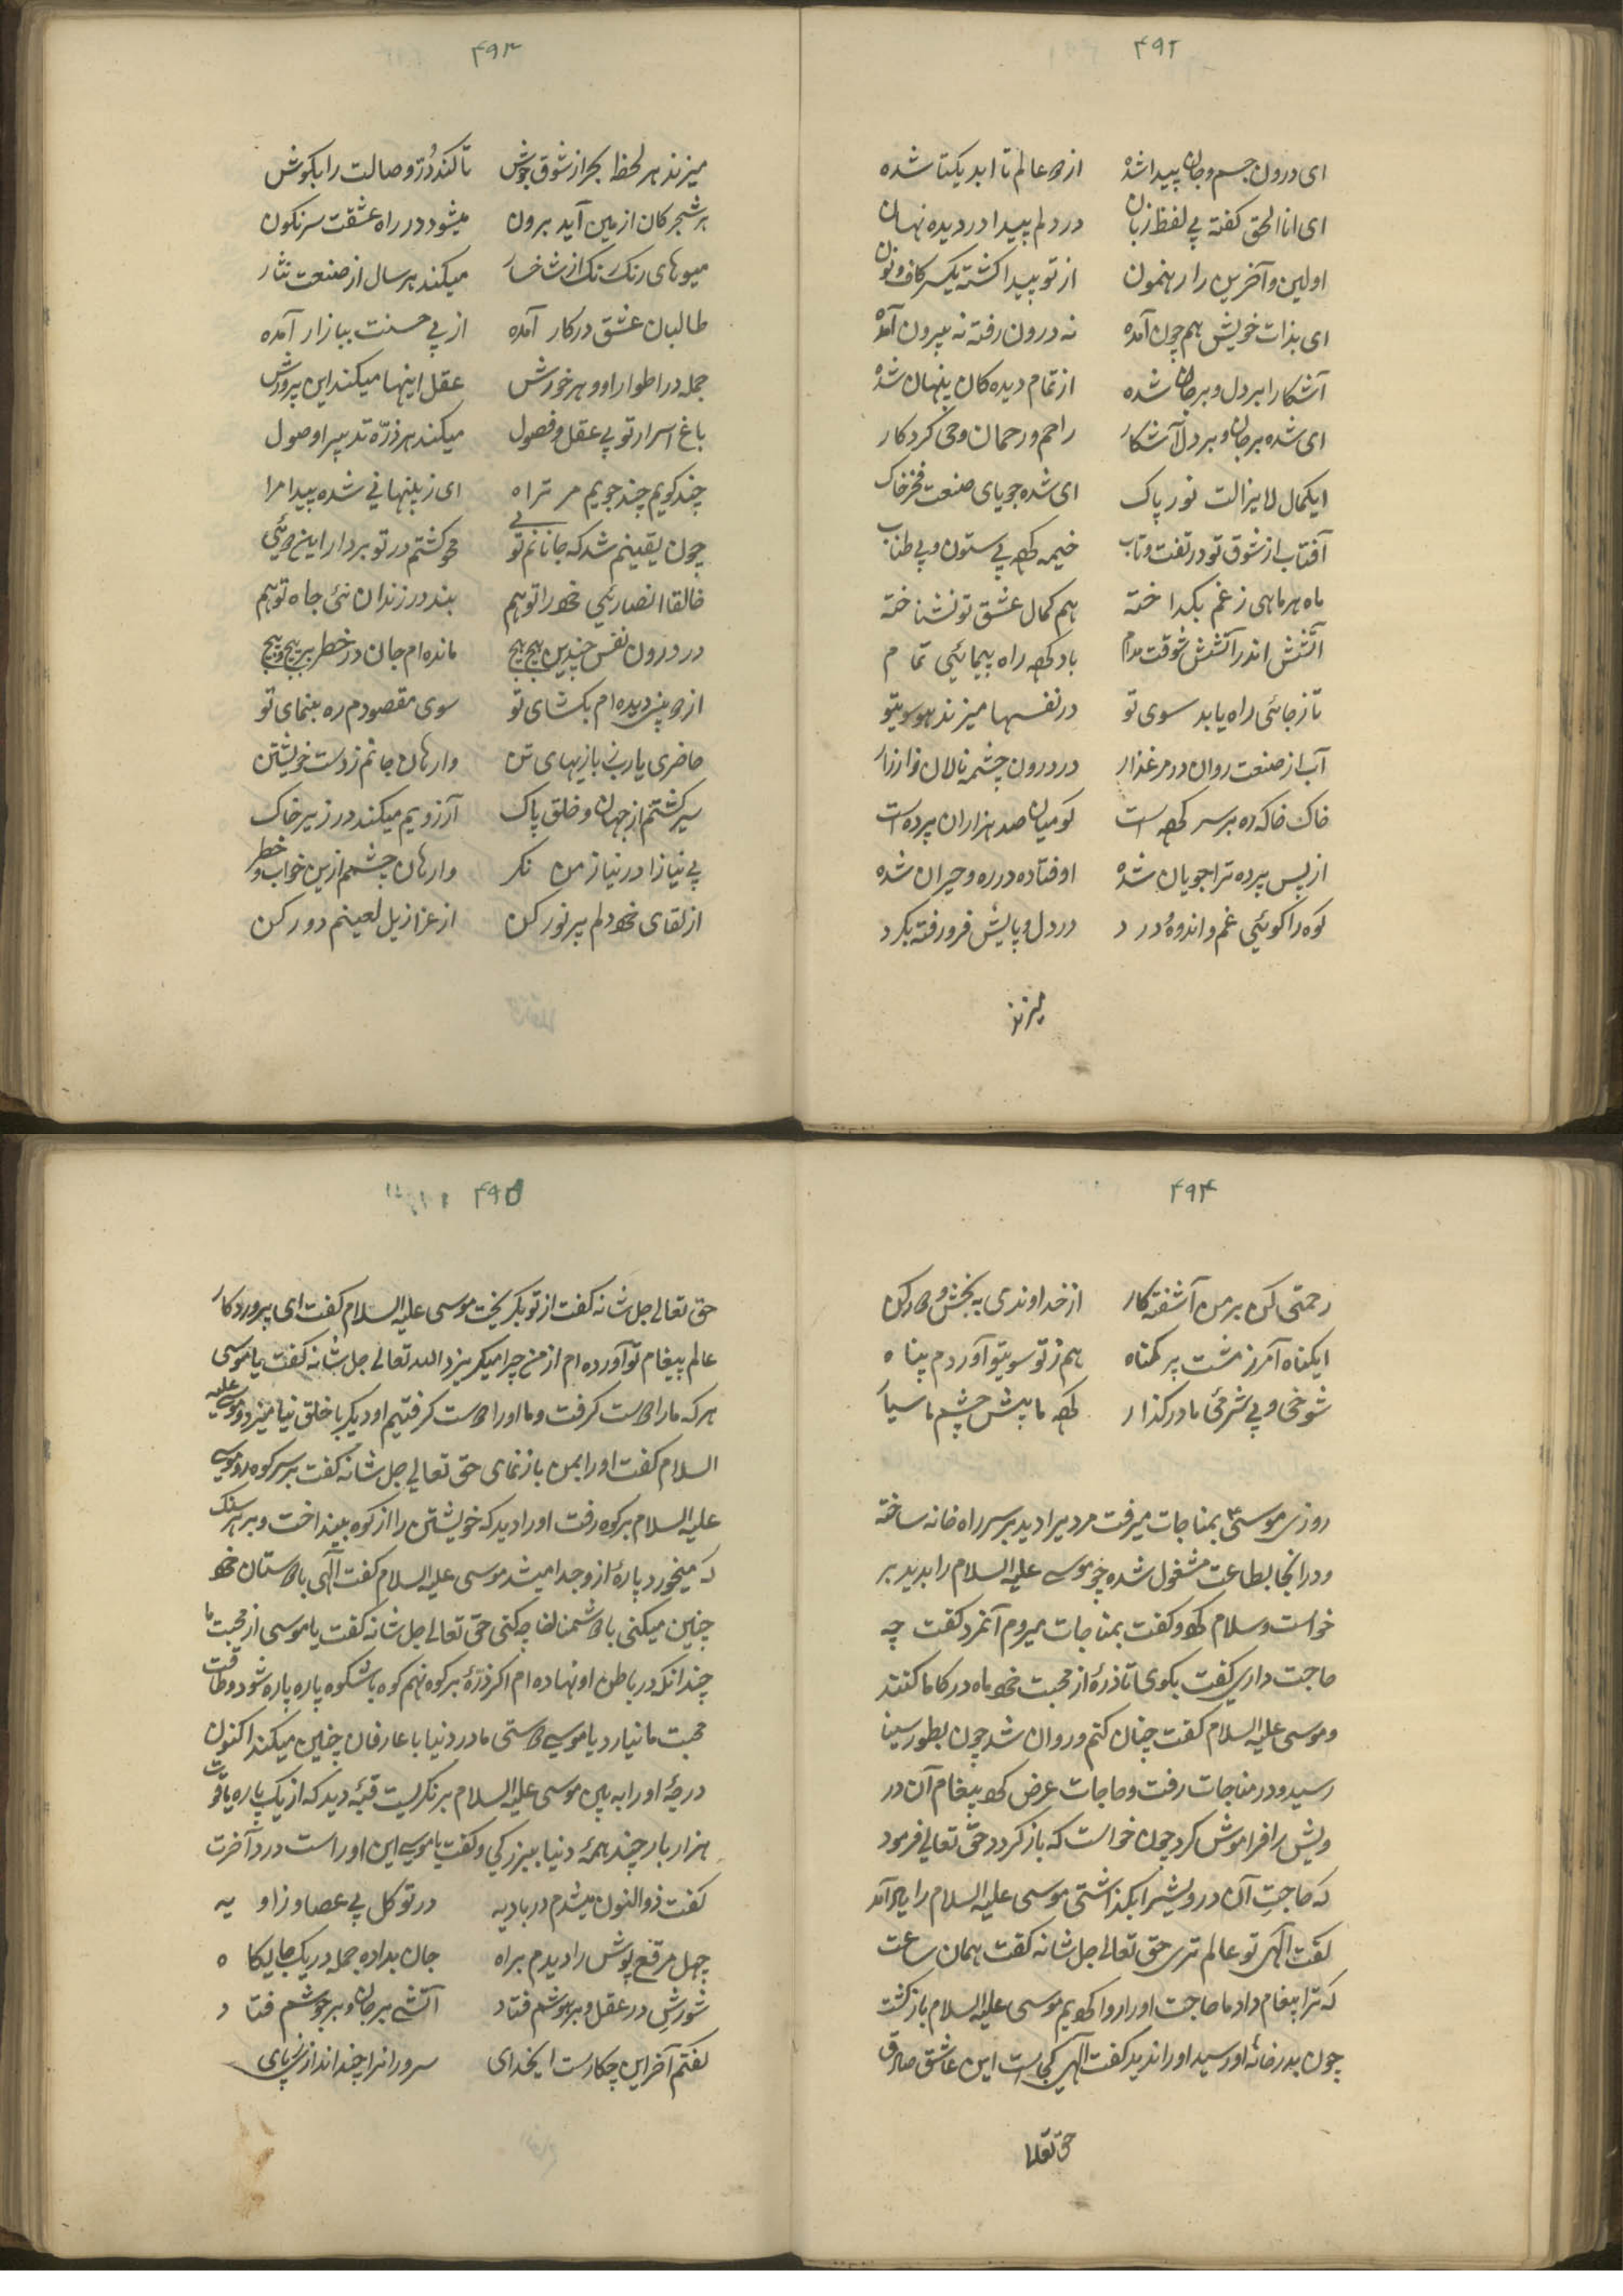 ۴۹۲
ای درون جسم و جان پیدا شده از دو عالم تا ابد یکتا شده
ای انا الحق گفته بی لفظ زبان در دلم پیدا در دیده نهان
اولین و آخرین را رهنمون از تو پیدا گشته یکسر کاف و نون
ای بذات خویش هم چون آمده نه درون رفته نه بیرون آمده
آشکارا بر دل و بر جان شده از تمام دیده کان پنهان شده
ای شده بر جان و بر دل آشکار راحم و رحمان و حی کردکار
ایکمال لایزالت نور پاک ای شده جویای صنعت فخر خاک
آفتاب از شوق تو در تفت و تاب خیمه کرده بی ستون و بی طناب
ماه هر ماهی ز غم بکداخته هم کمال عشق تو نشناخته
آتش اندر آتش شوقت مدام باد کرده راه پیمائی تمام
تا ز جائی راه یابد سوی تو در نفسها میزند هو سویتو
آب از صنعت روان در مرغذار در درون چشمه نالان زار زار
خاک خاک ره بر سر کرده است کو میان صد هزاران پرده است
از پس پرده ترا جویان شده اوفتاده در ره و حیران شده
کوه را کوئی غم و اندوهٔ درد در دل و پایش فرو رفته بکرد
میزند
۴۹۳
میزند هر لحظ بحر از شوق جوش تا کند دُرّ وصالت را بکوش
هر شجر کان از زمین آید برون میشود در راه عشقت سرنکون
میوهای رنک رنک از شاخسار میکند هر سال از صنعت نثار
طالبان عشق در کار آمده از پی حسنت ببازار آمده
جمله در اطوار او و هر خورش عقل اینها میکند این پرورش
باغ اسرار تو بی عقل و فصول میکند هر ذرّه تدبیر اوصول
چند کویم چند جویم مر تراه ای ز پنهانی شده پیدا مرا
چون یقینم شد که جانانم توئی محو کشتم در تو بردار این دوئی
خالقا انصار نئی خود را توهم بند در زندان نئی جاه توهم
در درون نفس چندین پیچ پیچ مانده ام جان در خطر بر پیچ پیچ
از دو بینی دیده ام بکشای تو سوی مقصودم ره بنمای تو
حاضری یارب ز بازیهای تن وارهان جانم ز دست خویشتن
سیر کشتم از جهان و خلق پاک آرزویم میکند در زیر خاک
بی نیازا در نیاز من نکر وارهان چشمم ازین خواب و خطر
از لقای خود دلم پر نور کن از عزازیل لعینم دور کن
۴۹۴
رحمتی کن بر من آشفته کار از خداوندی به بخش و در کن
ایکناه آمرز مشت پر کناه هم ز تو سویتو آوردم پناه
شوخی و بی شرمی ما در کذار کرده ما پیش چشم ما سیا
روزی موسیٰ بمناجات میرفت مردیرا دید بر سر راه خانه ساخته
و در انجا بطاعت مشغول شده چو موسی علیه السلام را بدید بر
خواست و سلام کرد و کفت بمناجات میروم آنمرد کفت چه
حاجت داری کفت بکوی تا ذرهٔ از محبت خود ماه در کاما کنند
و موسی علیه السلام کفت چنان کنم و روان شد چون بطور سینا
رسید و در مناجات رفت و حاجات عرض کرد پیغام آن در
ویش را فراموش کرد چون خواست که باز کردد حق تعالی فرمود
که حاجت آن درویشرا بکذاشتی موسی علیه السلام را یاد آمد
کفت آلهی تو عالم تری حق تعالی جل شانه کفت همان ساعت
که ترا پیغام داد ما حاجت او را روا کردیم موسی علیه السلام باز کشت
چون بدر خانهٔ او رسید او را ندید کفت آلهی کجاست این عاشق صادق
حق تعالی
۴۹۵
حق تعالی جل شانه کفت از تو بکریخت موسی علیه السلام کفت ای پروردکار
عالم پیغام تو آورده ام از من چرا میکریزد الله تعالی جل شانه کفت یا موسی
هر که ما را دوست کرفت و ما او را دوست کرفتیم او دیکر با خلق نیامیزد موسی علیه
السلام کفت او را بمن باز نمای حق تعالی جل شانه کفت بر سر کوه رو موسی
علیه السلام بر کوه رفت او را دید که خویشتن را از کوه بینداخت و بر هر سنک
که میخورد پارهٔ از و جدا میشد موسی علیه السلام کفت آلهی با دوستان خود
چنین میکنی با دشمنان چه کنی حق تعالی جل شانه کفت یا موسی از محبت ما
چندانکه در باطن او نهاده ام اکر ذرّهٔ بر کوه نهم کوه باشکوه پاره پاره شود و طاقت
محبت ما نیارد یا موسی دوستی ما در دنیا با عارفان چنین میکند اکنون
درجهٔ او را به بین موسی علیه السلام بر نکریست قبّهٔ دید که از یک پاره یاقوت
هزار بار چند همهٔ دنیا ببزرکی و کفت یا موسی این او راست در آخرت
کفت ذوالنون میشدم در بادیه در توکل بی عصا و زاویه
چهل مرقع پوش را دیدم براه جان بداده جمله در یک جایکاه
شورش در عقل و بر هوشم فتاد آتشی بر جان و بر جوشم فتاد
کفتم آخر این چکارست ایخدای سرورانرا چند اندازی ز پای